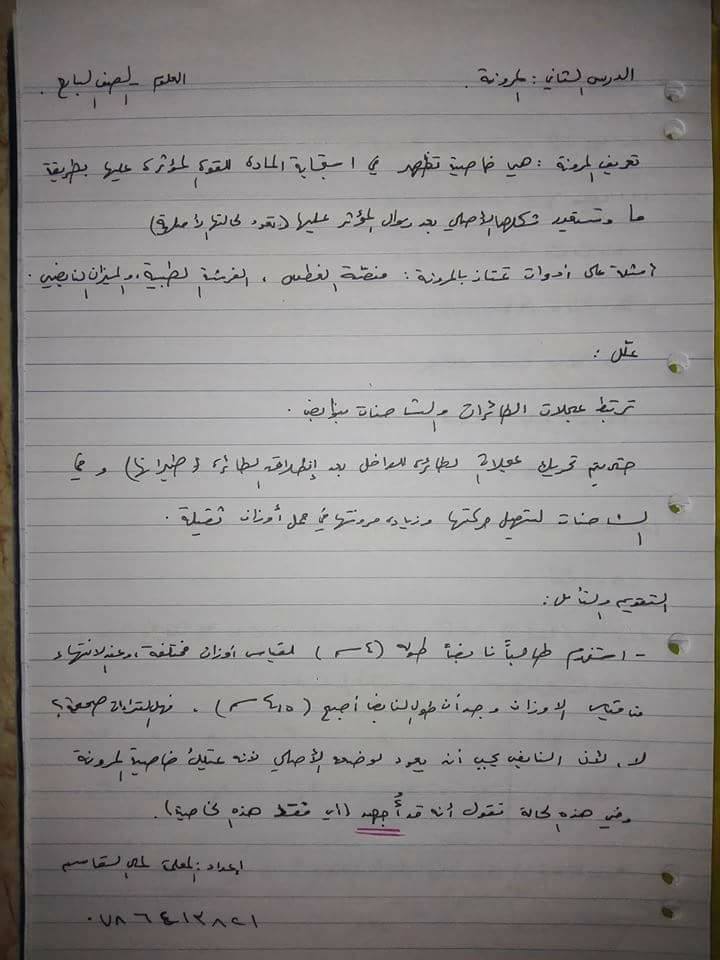 الدرس الثاني : المرونة . العلوم - الصف السابع .
تعريف المرونة : هي خاصية تظهر في استجابة المادة للقوة المؤثرة عليها بطريقة
ما وتستعيد شكلها الأصلي بعد زوال المؤثر عليها (تعود لحالتها الأصلية)
أمثلة على أدوات تمتاز بالمرونة : منصة الغطس ، الفرشة الطبية ، والميزان النابضي .
علل :
ترتبط عجلات الطائرات والشاحنات بنوابض .
حتى يتم تحريك عجلات الطائرة للداخل بعد إنطلاق الطائرة (طيرانها) و في
الشاحنات لتسهيل حركتها وزيادة مرونتها في حمل أوزان ثقيلة .
التقويم والتأمل :
- استخدم طالباً نابضاً طوله (٤ سم) لقياس أوزان مختلفة ، وعند الانتهاء
من قياس الاوزان وجد أن طول النابض أصبح (٤٫٥ سم) . فهل القراءات صحيحة ؟
لا ، لأن النابض يجب أن يعود لوضعه الأصلي لأنه يمتلك خاصية المرونة
وفي هذه الحالة نقول أنه قد أُجهد (أي فقد هذه الخاصية) .
إعداد : المعلمة لمى القاسم
٠٧٨٦٤١٣٨٢١